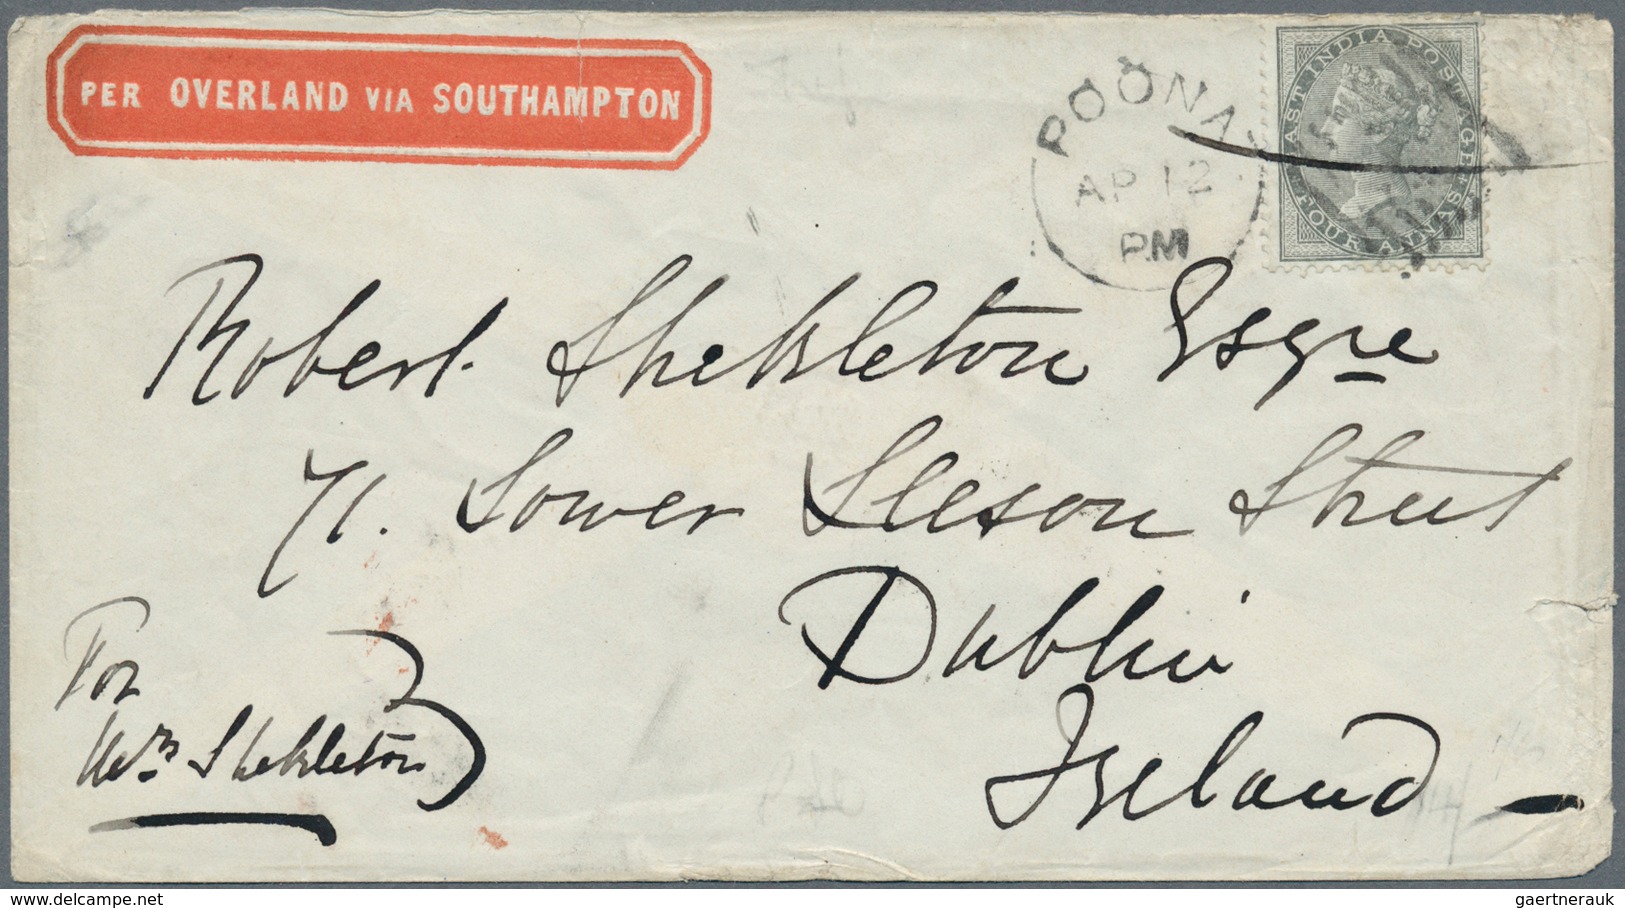 PER OVERLAND VIA SOUTHAMPTON
POONA
AP 12
PM
EAST INDIA POSTAGE
FOUR ANNAS
Robert Shekleton Esqre
71. Lower Leeson Street
Dublin
Ireland
For
Mrs Shekleton
gaertnerauk